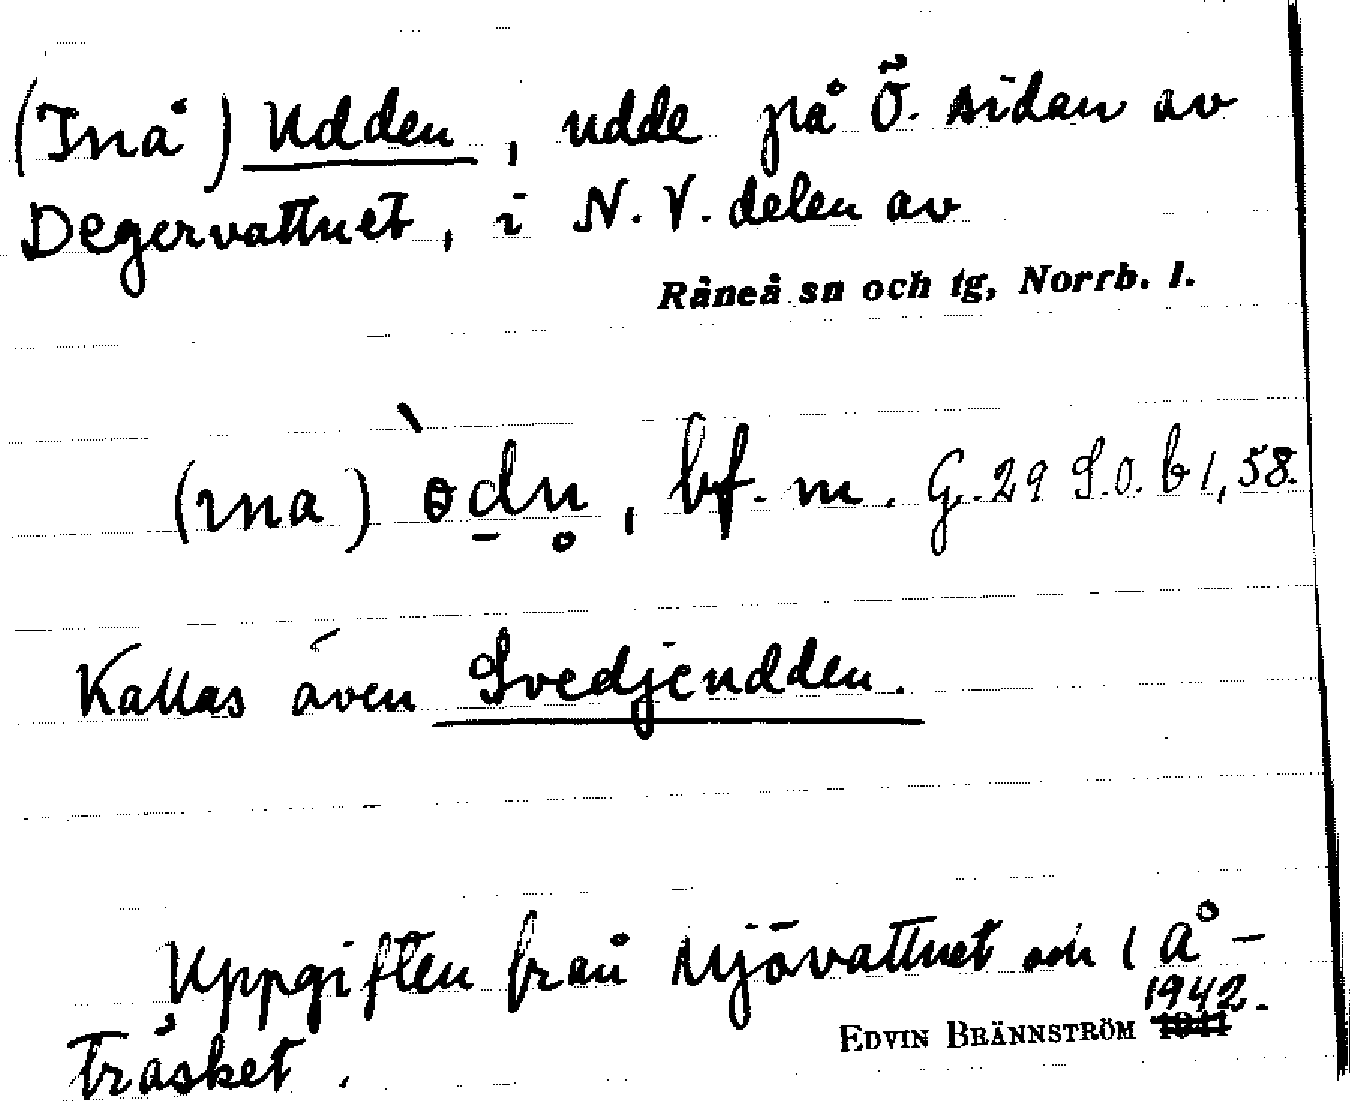 (Inå) Udden, udde på Ö. sidan av
Degervattnet, i N.V. delen av
Råneå sn och tg, Norrb. l.
bf. m. G. 29 S.O. b 1, 58.
Kallas även Svedjeudden.
Uppgiften från Mjövattnet och Lå-
träsket.
EDVIN BRÄNNSTRÖM 1942.